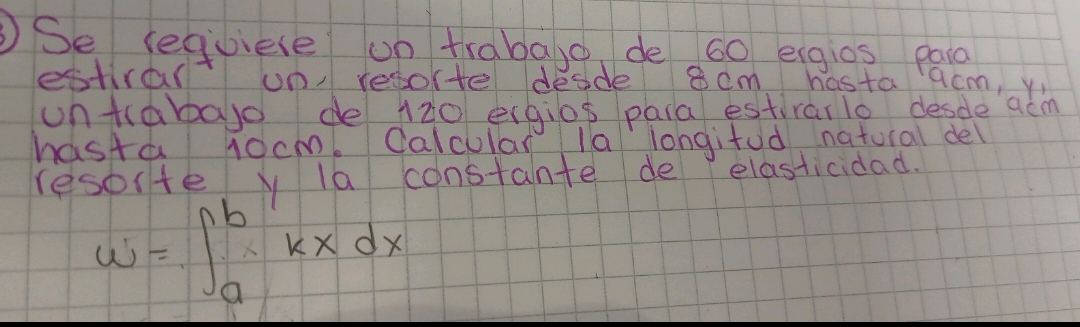 3) Se requiere un trabajo de 60 ergios para
estirar un resorte desde 8cm hasta 9cm, y,
un trabajo de 120 ergios para estirarlo desde 9cm
hasta 10cm. Calcular la longitud natural del
resorte y la constante de elasticidad.
w = ∫_a^b kx dx